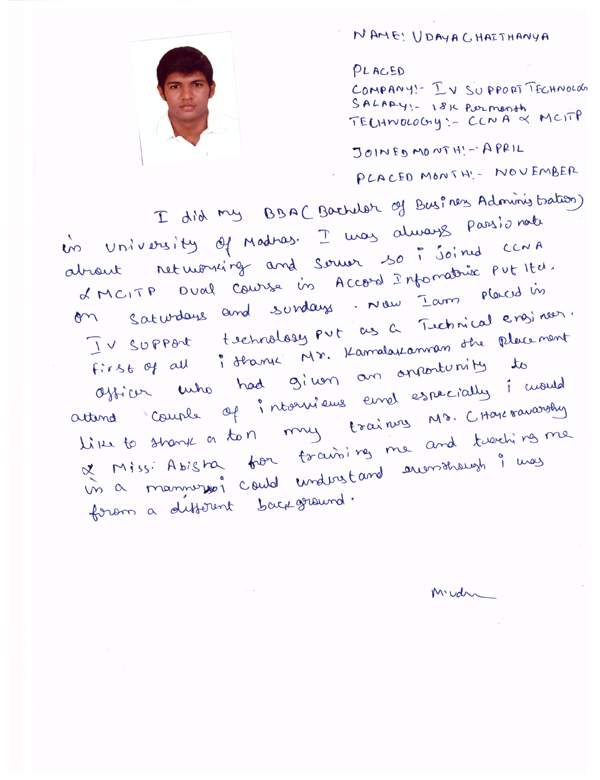 NAME: UDAYA CHAITHANYA
PLACED
COMPANY:- IV SUPPORT TECHNOLOG
SALARY:- 18K Per month
TECHNOLOGY:- CCNA & MCITP
JOINED MONTH:- APRIL
PLACED MONTH:- NOVEMBER
I did my BBA (Bachelor of Business Administration)
in University of Madras. I was always Passionate
about networking and Server so i joined CCNA
& MCITP Dual Course in Accord Infomatrix Pvt ltd.
on Saturdays and sundays. Now I am placed in
IV SUPPORT technology Pvt as a Technical engineer.
First of all i thank Mr. Kamalakannan the placement
officer who had given an opportunity to
attend couple of interviews and especially i would
like to thank a ton my trainers Mr. Chakravarthy
& Miss. Abisha for training me and teaching me
in a manner i could understand eventhough i was
from a different background.